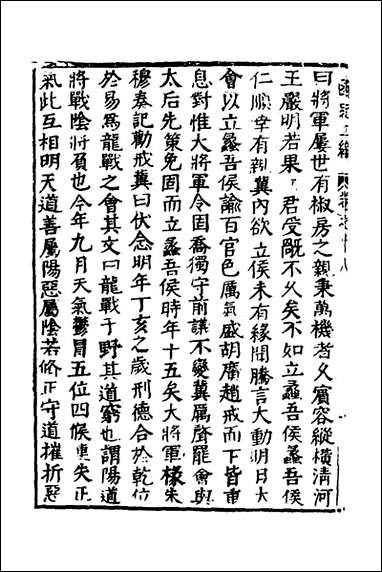 曰將軍屢世有椒房之親秉萬機者久賓容縱橫清河
王嚴明若果立君受敵不久矣不如立蠡吾侯蠡吾侯
仁順幸有親冀內欲立侯未有緣聞騰言大動明日大
會以立蠡吾侯諭百官色厲氣盛胡廣趙戒而下皆重
息對惟大將軍令固喬獨守前議不變冀厲聲罷會與
太后先策免固而立蠡吾侯時年十五矣大將軍椽朱
穆奏記勸戒冀曰伏念明年丁亥之歲刑德合於乾位
於易爲龍戰之會其文曰龍戰于野其道窮也謂陽道
將戰陰將負也今年九月天氣鬱冒五位四候連失正
氣此互相明天道善屬陽惡屬陰若修正守道摧折惡